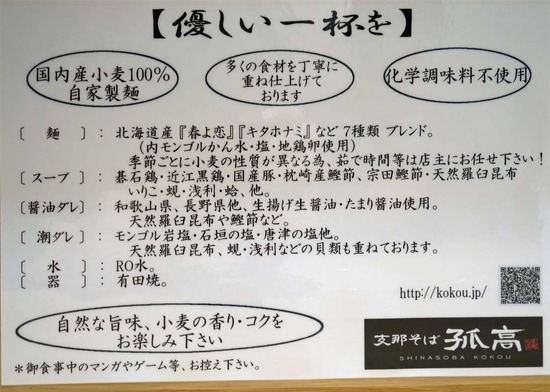 【優しい一杯を】
国内産小麦100%
自家製麺
多くの食材を丁寧に
重ね仕上げて
おります
化学調味料不使用
〔 麺 〕：北海道産『春よ恋』『キタホナミ』など 7種類 ブレンド。
(内モンゴルかん水・塩・地鶏卵使用)
季節ごとに小麦の性質が異なる為、茹で時間等は店主にお任せ下さい!
〔 スープ 〕：碁石鶏・近江黒鶏・国産豚・枕崎産鰹節、宗田鰹節・天然羅臼昆布
いりこ・蜆・浅利・蛤、他。
〔醤油ダレ〕：和歌山県、長野県他、生揚げ生醤油・たまり醤油使用。
天然羅臼昆布や鰹節など。
〔 潮ダレ 〕：モンゴル岩塩・石垣の塩・唐津の塩他。
天然羅臼昆布、蜆・浅利などの貝類も重ねております。
〔 水 〕：RO水。
〔 器 〕：有田焼。
http://kokou.jp/
自然な旨味、小麦の香り・コクを
お楽しみ下さい
支那そば 孤高
SHINASOBA KOKOU
＊御食事中のマンガやゲーム等、お控え下さい。